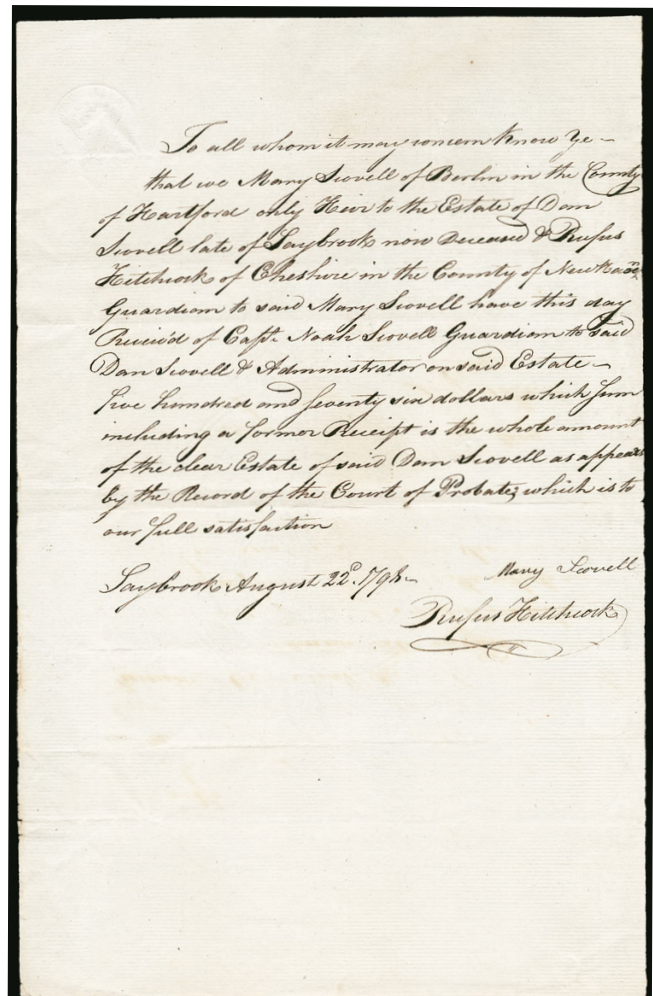 To all whom it may concern Know Ye—
that we Mary Scovell of Berlin in the County
of Hartford only Heir to the Estate of Dan
Scovell late of Saybrook now Deceased & Rufus
Hitchcock of Cheshire in the County of New
Guardian to said Mary Scovell have this day
Receiv'd of Capt. Noah Scovell Guardian to said
Dan Scovell & Administrator on said Estate—
five hundred and seventy six dollars which sum
including a former Receipt is the whole amount
of the clear Estate of said Dan Scovell as appears
by the Record of the Court of Probate; which is to
our full satisfaction
Saybrook August 22d. 1798—
Mary Scovell
Rufus Hitchcock